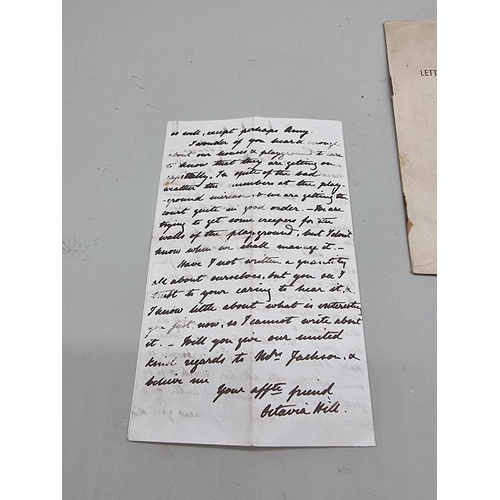 as well, except perhaps Amy.
I wonder if you heard enough
about our houses & playground to care
to know that they are getting on
capitally. In spite of the bad
weather the numbers at the play-
ground increase & we are getting the
court quite in good order. - We are
trying to get some creepers for the
walls of the playground, but I don't
know when we shall manage it. -
Have I not written a quantity
all about ourselves, but you see I
trust to your caring to hear it, &
I know little about what is interesting
you just now, so I cannot write about
it. - Will you give our united
kind regards to Mrs Jackson, &
believe me
Your affte friend
Octavia Hill.
LETT